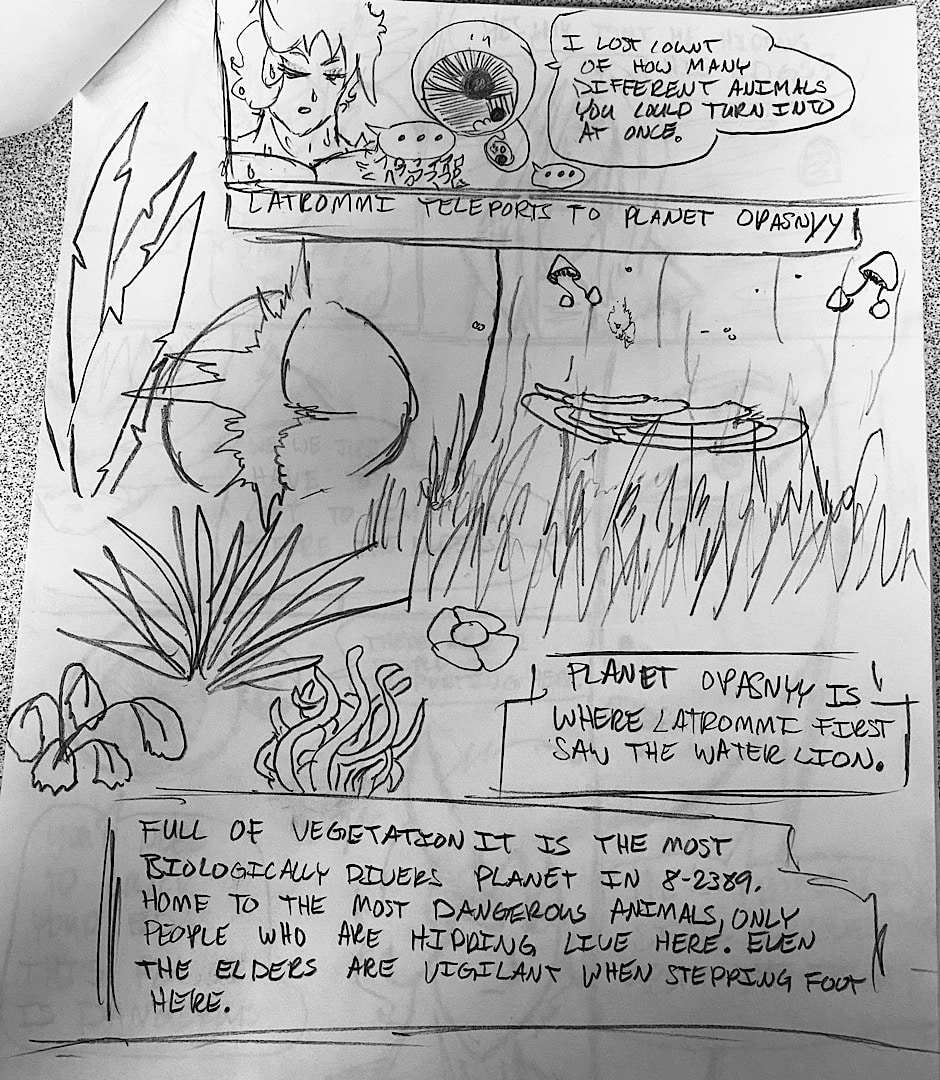 I LOST COUNT
OF HOW MANY
DIFFERENT ANIMALS
YOU COULD TURN INTO
AT ONCE.
...
...
LATROMMI TELEPORTS TO PLANET OPASNYY
PLANET OPASNYY IS
WHERE LATROMMI FIRST
SAW THE WATER LION.
FULL OF VEGETATION IT IS THE MOST
BIOLOGICALLY DIVERS PLANET IN 8-2389.
HOME TO THE MOST DANGEROUS ANIMALS, ONLY
PEOPLE WHO ARE HIDDING LIVE HERE. EVEN
THE ELDERS ARE VIGILANT WHEN STEPPING FOOT
HERE.